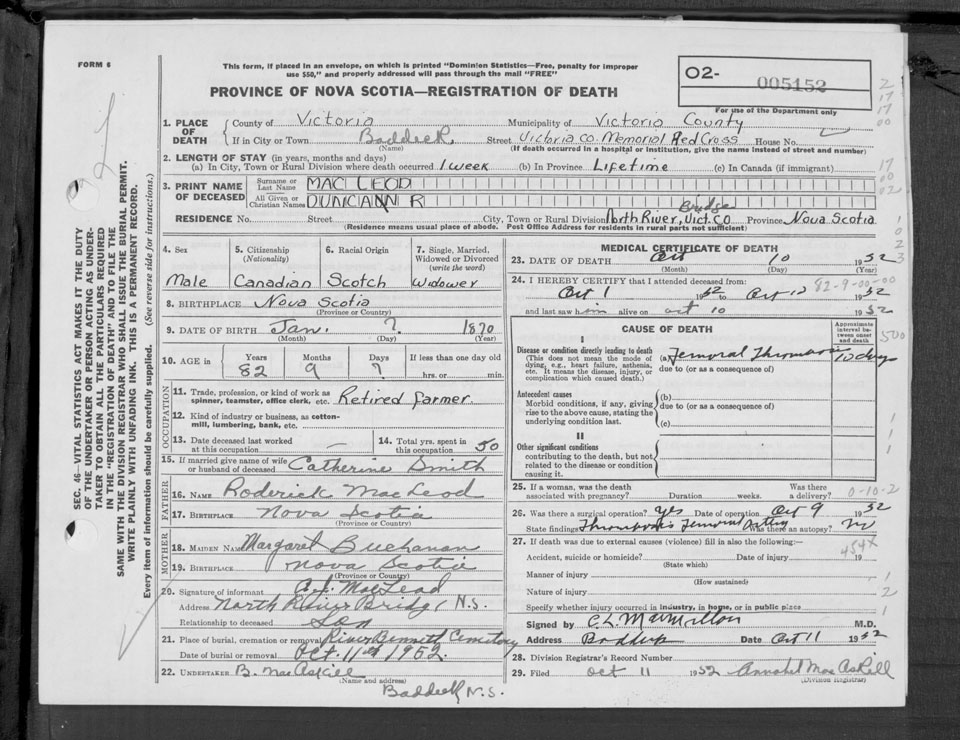 FORM 6
This form, if placed in an envelope, on which is printed "Dominion Statistics—Free, penalty for improper
use $50," and properly addressed will pass through the mail "FREE"
PROVINCE OF NOVA SCOTIA—REGISTRATION OF DEATH
O2- 005152
For use of the Department only
SEC. 46—VITAL STATISTICS ACT MAKES IT THE DUTY
OF THE UNDERTAKER OR PERSON ACTING AS UNDER-
TAKER TO OBTAIN ALL THE PARTICULARS REQUIRED
IN THE "REGISTRATION OF DEATH" AND TO FILE THE
SAME WITH THE DIVISION REGISTRAR WHO SHALL ISSUE THE BURIAL PERMIT.
WRITE PLAINLY WITH UNFADING INK. THIS IS A PERMANENT RECORD.
Every item of information should be carefully supplied. (See reverse side for instructions.)
1. PLACE OF DEATH County of Victoria Municipality of Victoria County
If in City or Town Baddeck Street Victoria Co. Memorial Red Cross House No.
(Name) (If death occurred in a hospital or institution, give the name instead of street and number)
2. LENGTH OF STAY (in years, months and days)
(a) In City, Town or Rural Division where death occurred 1 week (b) In Province Lifetime (c) In Canada (if immigrant)
3. PRINT NAME OF DECEASED Surname or Last Name MACLEOD
All Given or Christian Names DUNCAN R
RESIDENCE No. Street City, Town or Rural Division North River Bridge, Vict. CO Province Nova Scotia
(Residence means usual place of abode. Post Office Address for residents in rural parts not sufficient)
4. Sex Male
5. Citizenship (Nationality) Canadian
6. Racial Origin Scotch
7. Single, Married, Widowed or Divorced (write the word) Widower
8. BIRTHPLACE Nova Scotia
(Province or Country)
9. DATE OF BIRTH Jan. ? 1870
(Month) (Day) (Year)
10. AGE in Years Months Days If less than one day old
82 9 ? hrs. or min.
OCCUPATION
11. Trade, profession, or kind of work as spinner, teamster, office clerk, etc. Retired farmer
12. Kind of industry or business, as cotton-mill, lumbering, bank, etc.
13. Date deceased last worked at this occupation —
14. Total yrs. spent in this occupation 50
15. If married give name of wife or husband of deceased Catherine Smith
FATHER
16. NAME Roderick MacLeod
17. BIRTHPLACE Nova Scotia
(Province or Country)
MOTHER
18. MAIDEN NAME Margaret Buchanan
19. BIRTHPLACE Nova Scotia
(Province or Country)
20. Signature of informant A.J. MacLeod
Address North River Bridge, N.S.
Relationship to deceased Son
21. Place of burial, cremation or removal River Bennett Cemetery
Date of burial or removal Oct. 11th 1952.
22. UNDERTAKER B. MacAskill
(Name and address)
Baddeck N.S.
MEDICAL CERTIFICATE OF DEATH
23. DATE OF DEATH Oct 10 1952
(Month) (Day) (Year)
24. I HEREBY CERTIFY that I attended deceased from: 82-9-00-00
Oct 1 1952 to Oct 10 1952
and last saw him alive on Oct 10 1952
CAUSE OF DEATH
Approximate interval between onset and death
I
Disease or condition directly leading to death
(This does not mean the mode of dying, e.g., heart failure, asthenia, etc. It means the disease, injury, or complication which caused death.)
(a) Femoral Thrombosis 10 days
due to (or as a consequence of)
Antecedent causes
Morbid conditions, if any, giving rise to the above cause, stating the underlying condition last.
(b)
due to (or as a consequence of)
(c)
II
Other significant conditions
contributing to the death, but not related to the disease or condition causing it.
25. If a woman, was the death associated with pregnancy? Duration weeks. Was there a delivery? 0-10-2
26. Was there surgical operation? Yes Date of operation Oct 9 1952
State findings Thrombosis Femoral Artery Was there an autopsy? No
27. If death was due to external causes (violence) fill in also the following:— 454X
Accident, suicide or homicide? Date of injury 19
(State which)
Manner of injury
(How sustained)
Nature of injury
Specify whether injury occurred in industry, in home, or in public place
Signed by C.L. MacMillan M.D.
Address Baddeck Date Oct 11 1952
28. Division Registrar's Record Number
29. Filed Oct 11 1952 Annabel MacAskill
(Division Registrar)